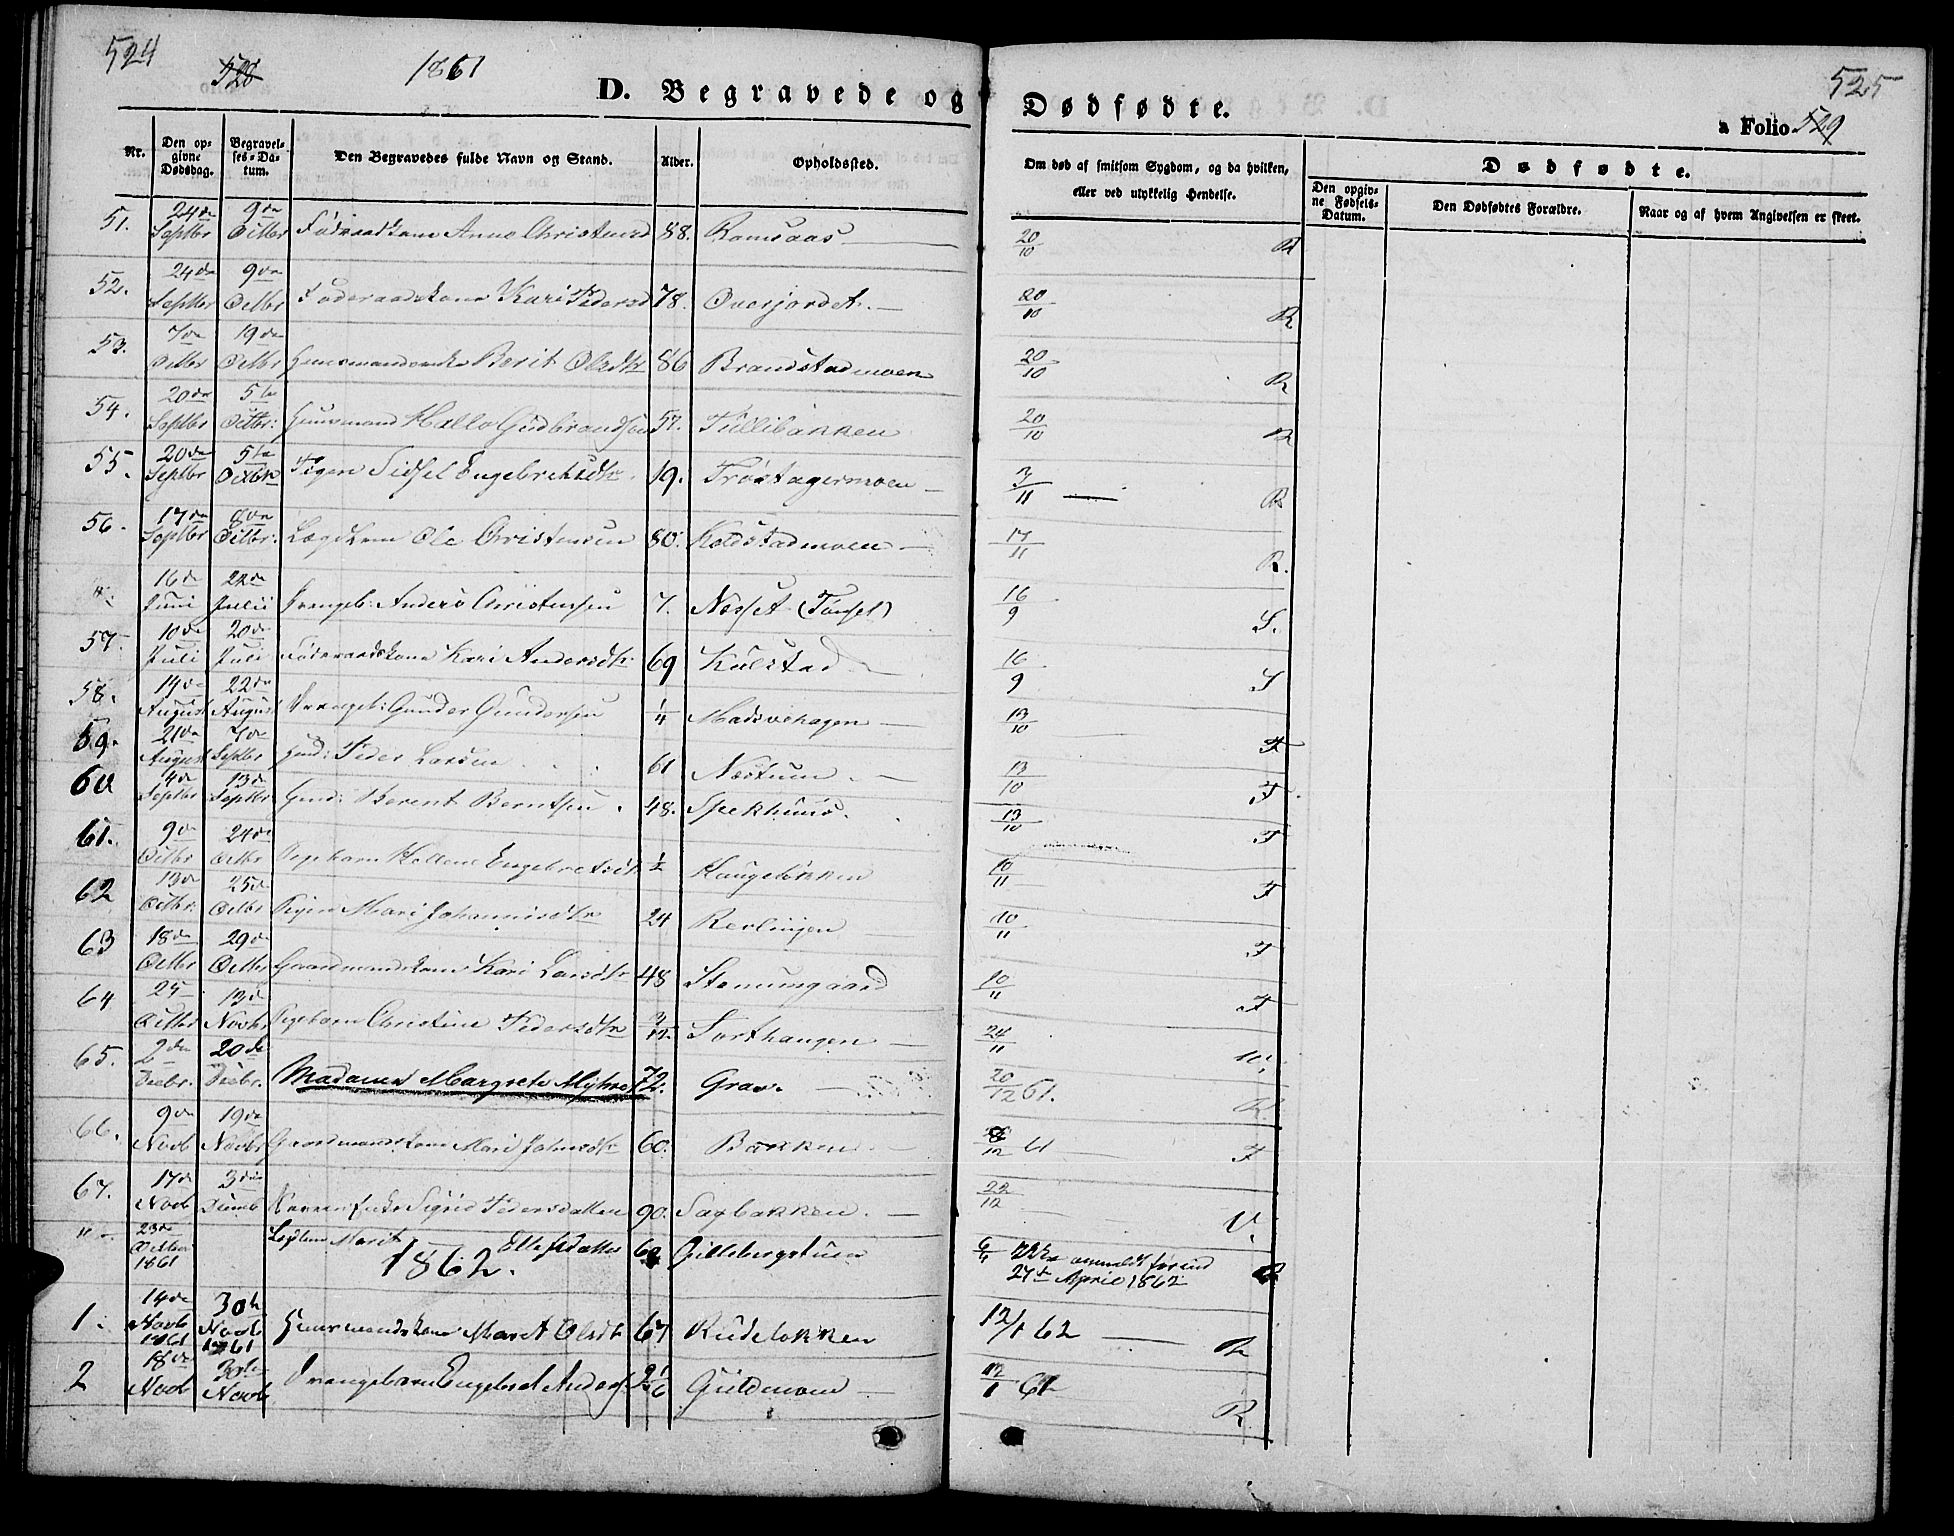 524
528
1861
D. Begravede og
Dødfødte.
525
a Folio 529
Nr. Den opgivne Dødsdag. Begravelses-Datum. Den Begravedes fulde Navn og Stand. Alder. Opholdssted. Om død af smitsom Sygdom, og da hvilken, eller ved ulykkelig Hendelse. Dødfødte.
Den opgivne Fødsels-Datum. Den Dødfødtes Forældre. Naar og af hvem Angivelsen er skeet.
51. 24de Septbr 9de Octbr Føderaadskone Anne Christensd 88. Ramsaas 20/10 R
52. 24de Septbr 9de Octbr Føderaadskone Kari Pedersd 78. Overjordet 20/10 R
53. 7de Octbr 19de Octbr Huusmandsenke Berit Olsdtr 86 Brandstadmoen 20/10 R
54. 20de Septbr 5te Octbr: Huusmand Halle Gudbrandsen 57. Tullibakken 20/10 R
55. 20de Septbr 5te Octbr Pigen Sidsel Engebrektsdtr. 19. Trøstagermoen 3/11 R
56. 17de Septbr 8de Octbr. Lægdslem Ole Christensen 80. Koldstadmoen 17/11 R.
". 16de Juni 22de Julii Drengeb: Anders Christensen 7. Næsset (Tønset) 16/9 S.
57. 10de Juli 20de Juli Føderaadskone Kari Andersdtr. 69 Kulstad 16/9 S
58. 14de August 22de August Drengeb: Gunder Gundersen 1/4 Madsvehagen 13/10 F
59. 21de August 7de Septbr Gmd: Peder Larsen 61 Næstum 13/10 F.
60 4de Septbr 13de Septbr Gmd: Berent Berntsen 48. Spekhuus. 13/10 F
61. 9de Octbr 24de Octbr Pigebarn Hellene Engebretsdtr 1/2 Haugebakken 10/11 F
62 13de Octbr. 25de Octbr Pigen Mari Johannisdtr 24 Revlingen 10/11 F
63 18de Octbr 29de Octbr Gaardmandskone Kari Larsdtr 48 Stenumgaard 10/11 F
64 25 Octbr 13de Novbr Pigebarn Christine Pedersdtr 3/12 Sorthaugen 24/11
65. 2den Decbr. 20de Decbr. Madamen Margrete Myhre 72. Grav. 20/12 61. R.
66. 9de Novb 19de Novbr Gaardmandskone Mari Johnsdtr 60. Bakken 8/12 F
67. 17de Novb 3die Decmb Sigrid Pedersdatter 90. Sagbakken. 22/12 U.
" 23de Octbr 1861 Lægdslem Marit Ellefsdatter 62 Gillebergstuen anmeldt først 27de April 1862
1862.
1. 14de Novb 1861 30te Novb 1861 Huusmandskone Maret Olsdtr 67 Rudelokken 12/1 62 R
2 18de Novb 30te Novb Drengebarn Engebret Anders 2 1/6 Guldmoen 12/1 62 R.